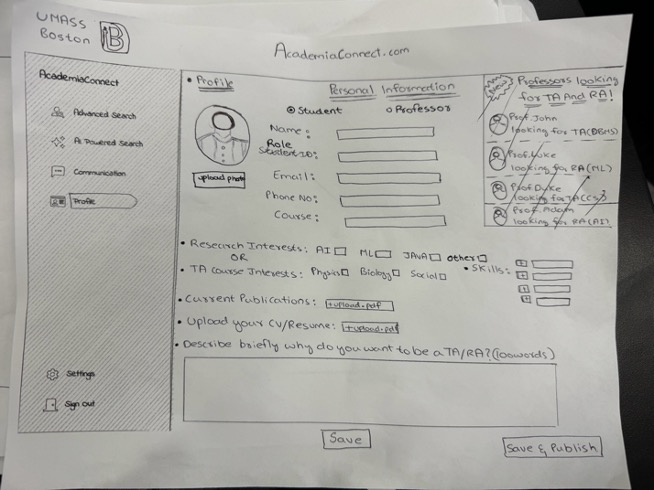 UMASS
Boston B
AcademiaConnect.com
AcademiaConnect
Advanced Search
AI Powered Search
Communication
Profile
Settings
Sign out
• Profile
upload photo
Personal Information
Student Professor
Name:
Role
Student ID:
Email:
Phone No:
Course:
NEW
Professors looking
for TA And RA!
Prof. John
looking for TA(DBMS)
Prof. Luke
looking for RA(ML)
Prof. Duke
looking for TA(CS)
Prof. Adam
looking for RA(AI)
• Research Interests: AI ML JAVA other
OR
• TA course Interests: Physics Biology Social • Skills:
+
+
+
+
• Current Publications: +upload.pdf
• Upload your CV/Resume: +upload.pdf
• Describe briefly why do you want to be a TA/RA? (100words)
Save
Save & Publish